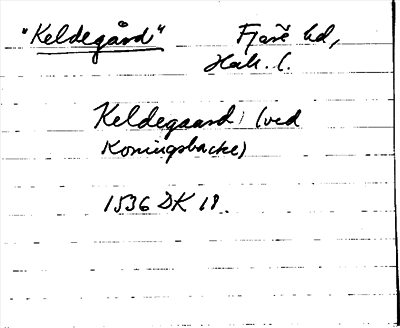 "Keldegård" Fjäre hd,
Hall. l.
Keldegaard (ved
Koningsbacke)
1536 DK 18.